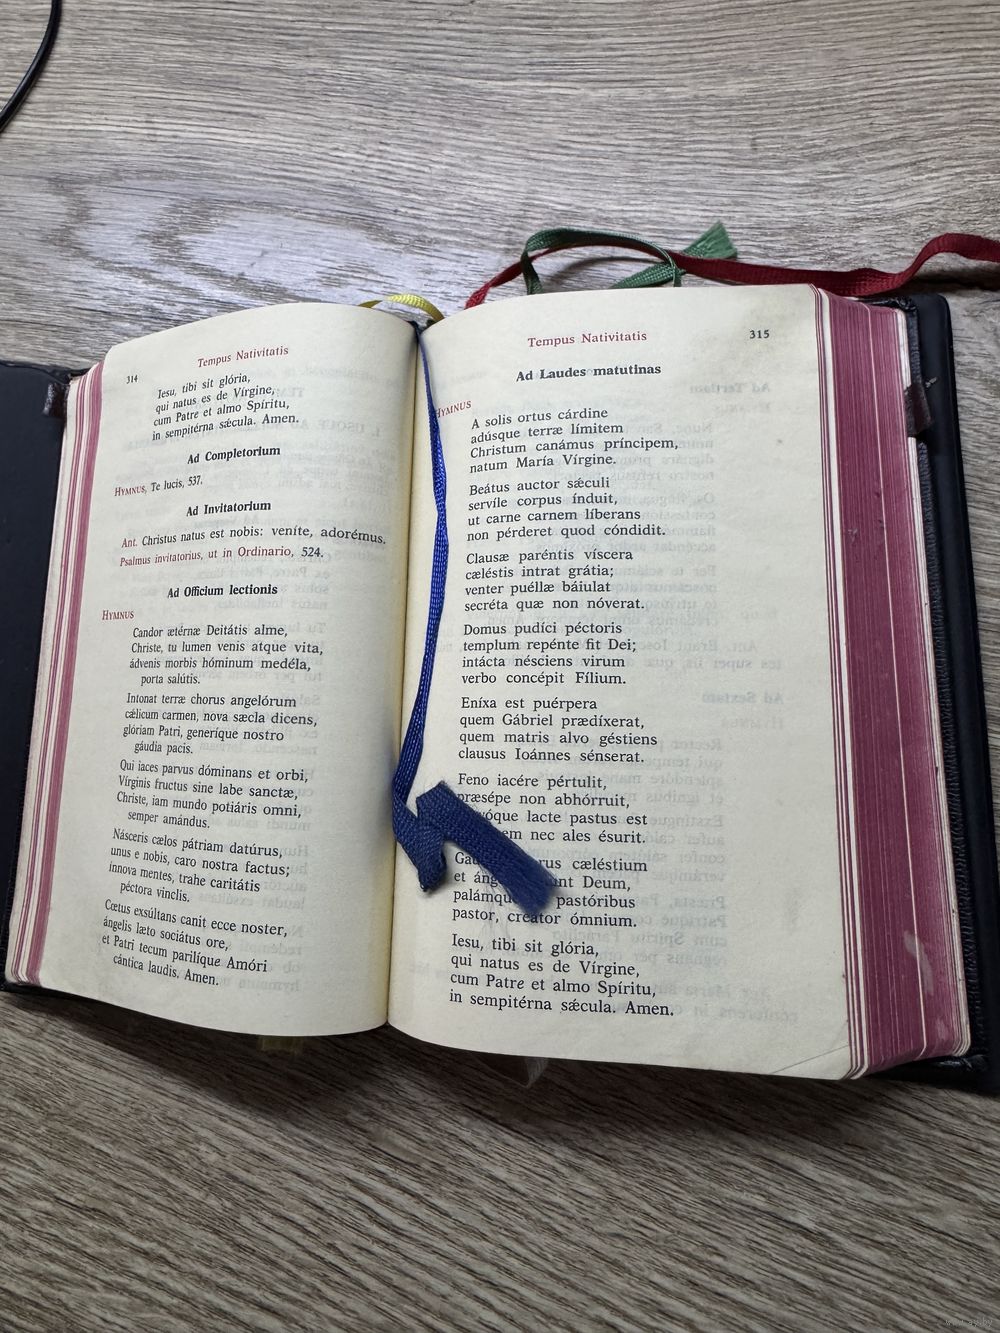 314
Tempus Nativitatis
Iesu, tibi sit glória,
qui natus es de Vírgine,
cum Patre et almo Spíritu,
in sempitérna sǽcula. Amen.
Ad Completorium
HYMNUS, Te lucis, 537.
Ad Invitatorium
Ant. Christus natus est nobis: veníte, adorémus.
Psalmus invitatorius, ut in Ordinario, 524.
Ad Officium lectionis
HYMNUS
Candor ætérnæ Deitátis alme,
Christe, tu lumen venis atque vita,
ádvenis morbis hóminum medéla,
porta salútis.
Intonat terræ chorus angelórum
cælicum carmen, nova sæcla dicens,
glóriam Patri, generíque nostro
gáudia pacis.
Qui iaces parvus dóminans et orbi,
Vírginis fructus sine labe sanctæ,
Christe, iam mundo potiáris omni,
semper amándus.
Násceris cælos pátriam datúrus,
unus e nobis, caro nostra factus;
ínnova mentes, trahe caritátis
péctora vinclis.
Cœtus exsúltans canit ecce noster,
ángelis læto sociátus ore,
et Patri tecum parilíque Amóri
cántica laudis. Amen.
Tempus Nativitatis
315
Ad Laudes matutinas
HYMNUS
A solis ortus cárdine
adúsque terræ límitem
Christum canámus príncipem,
natum María Vírgine.
Beátus auctor sǽculi
servíle corpus índuit,
ut carne carnem líberans
non pérderet quod cóndidit.
Clausæ paréntis víscera
cæléstis intrat grátia;
venter puéllæ báiulat
secréta quæ non nóverat.
Domus pudíci péctoris
templum repénte fit Dei;
intácta nésciens virum
verbo concépit Fílium.
Eníxa est puérpera
quem Gábriel prædíxerat,
quem matris alvo géstiens
clausus Ioánnes sénserat.
Feno iacére pértulit,
præsépe non abhórruit,
lacte pastus est
nec ales ésurit.
cæléstium
et Deum,
pastóribus
pastor, creátor ómnium.
Iesu, tibi sit glória,
qui natus es de Vírgine,
cum Patre et almo Spíritu,
in sempitérna sǽcula. Amen.